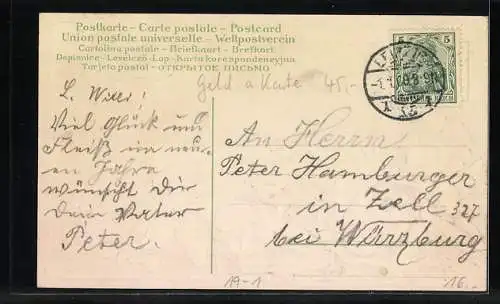 Postkarte – Carte postale – Postcard
Union postale universelle – Weltpostverein
Cartolina postale – Briefkaart – Brefkort
Dopisnice – Levelező-Lap – Karta korespondencyjna
Tarjeta postal – ОТКРЫТОЕ ПИСЬМО
Geld a Karte 45,-
5 5
L. Willi!
Viel Glück und
Fleiß im neu-
en Jahre
wünscht Dir
Dein Vater
Peter.
An Herrn
Peter Hamburger
in Zell 327
bei Würzburg
19-1
16.-